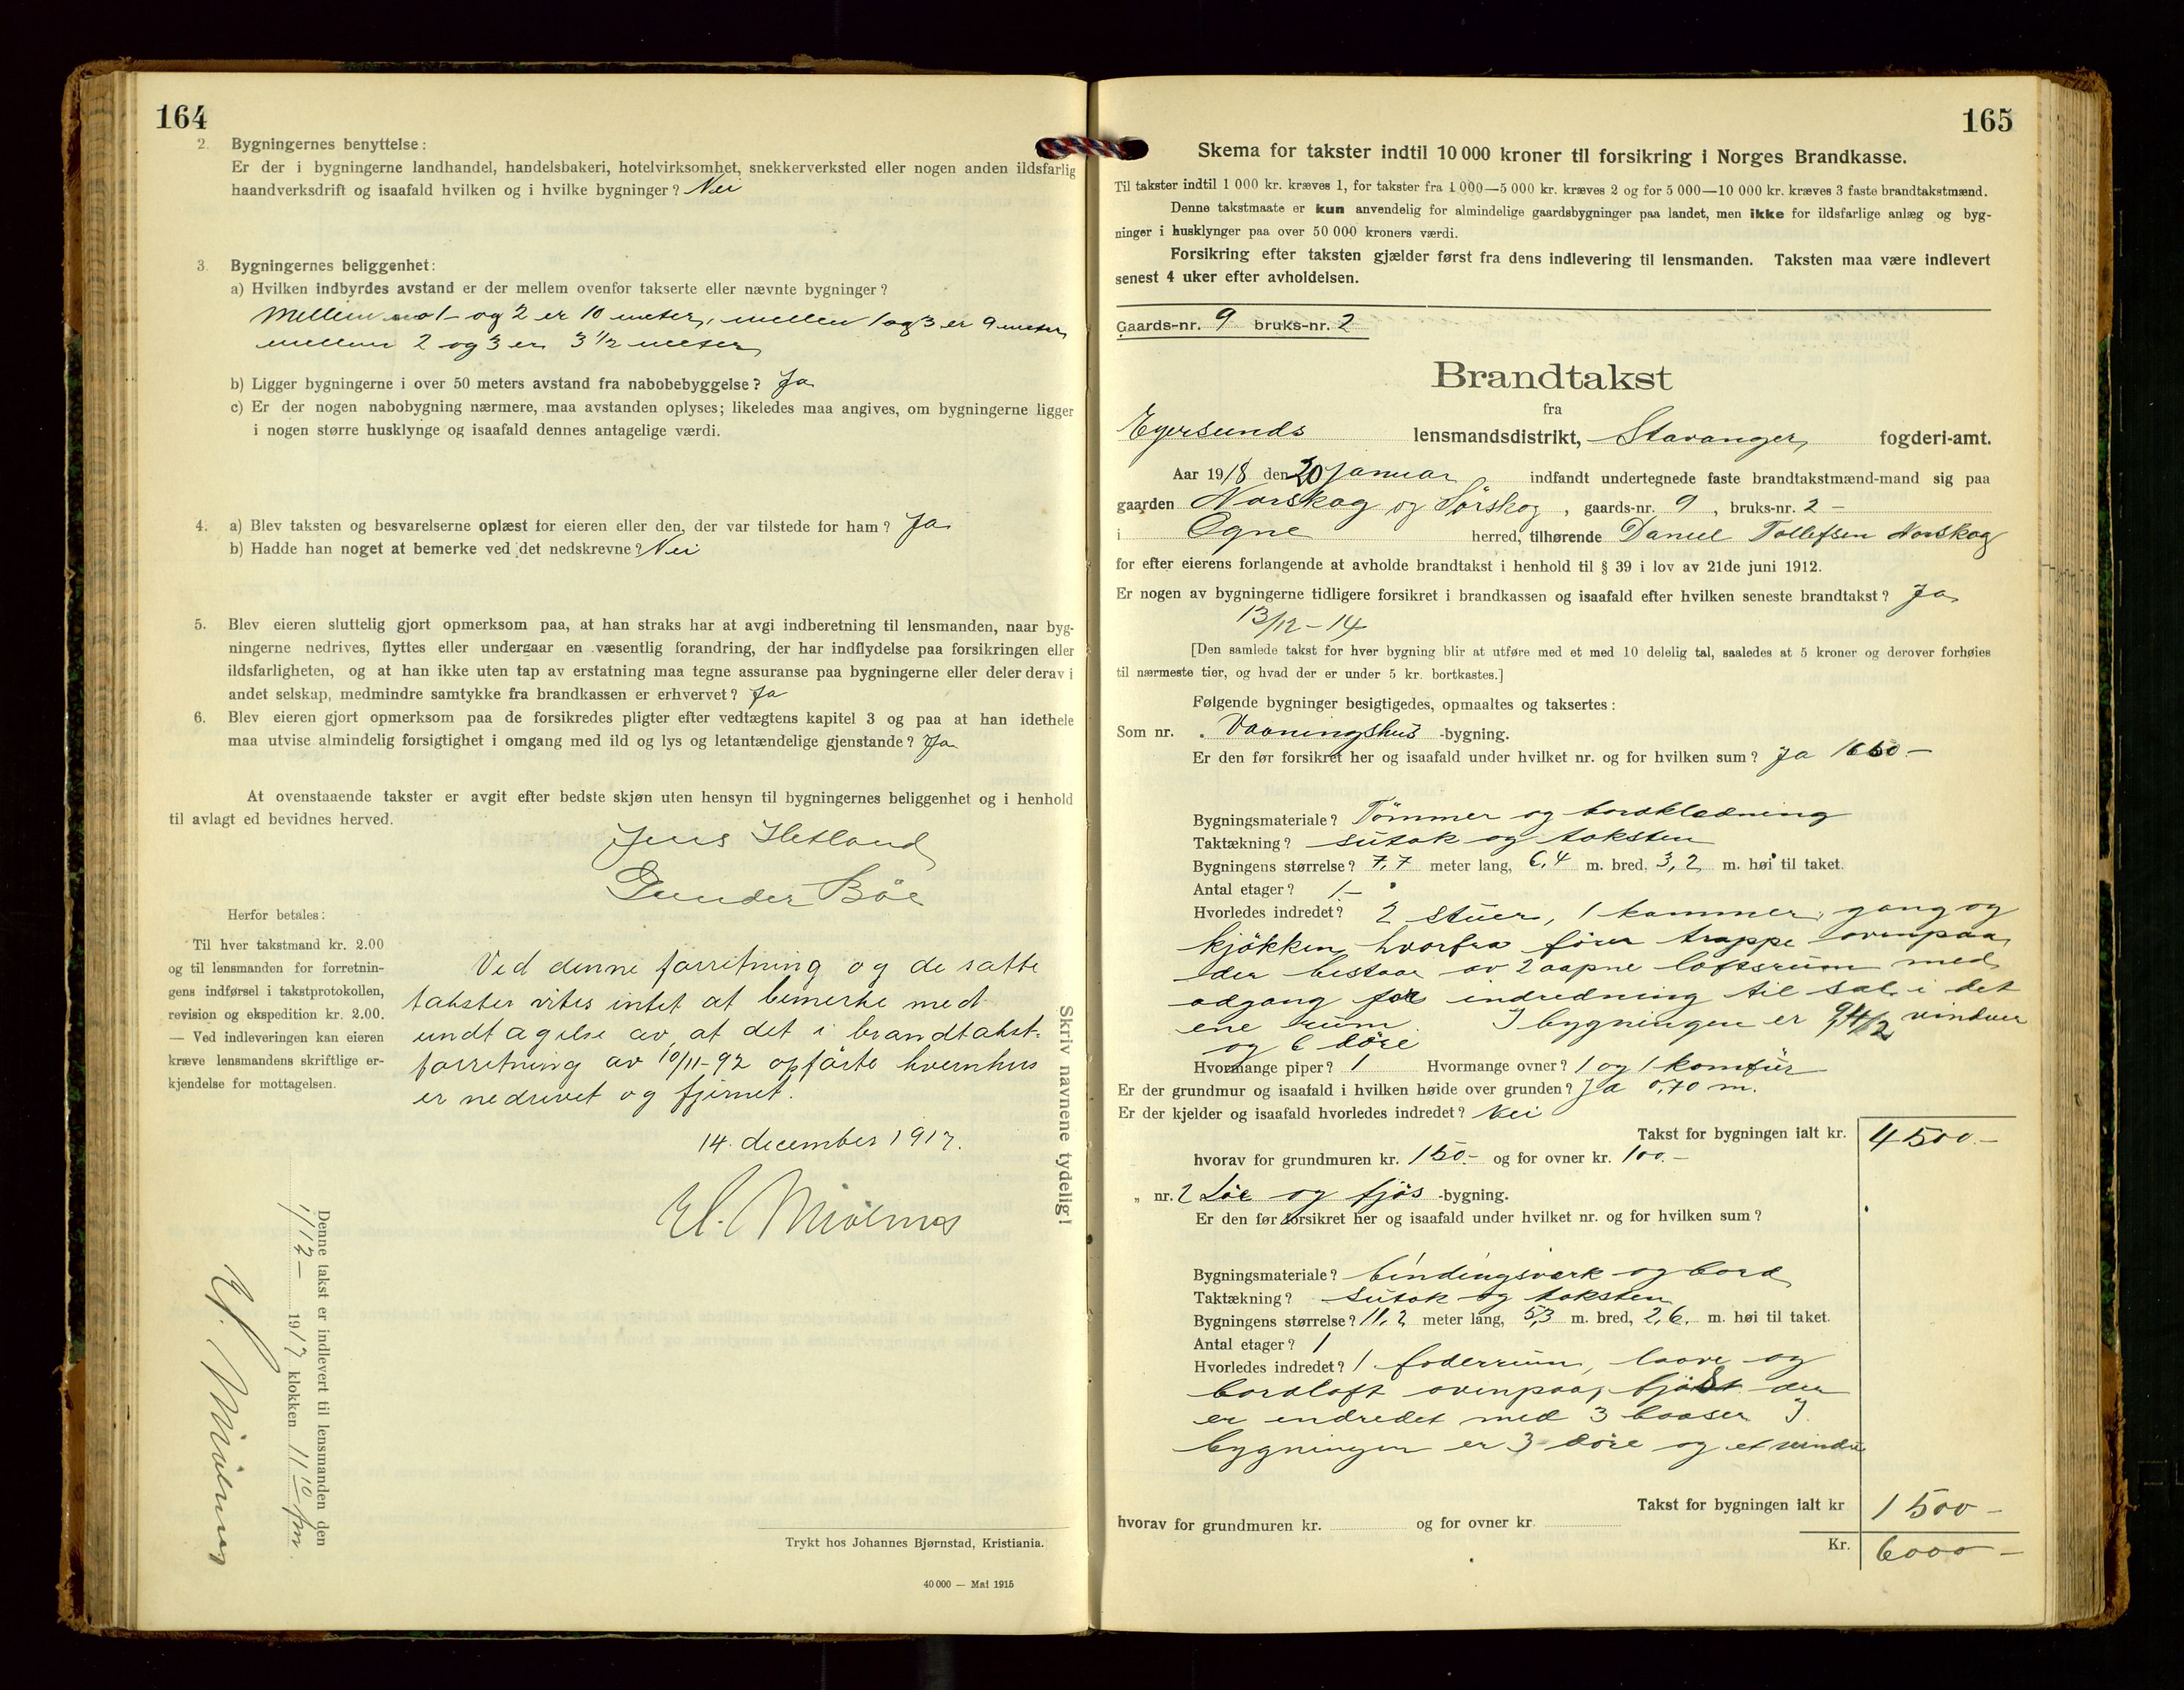 164
2. Bygningernes benyttelse:
Er der i bygningerne landhandel, handelsbakeri, hotelvirksomhet, snekkerverksted eller nogen anden ildsfarlig
haandverksdrift og isaafald hvilken og i hvilke bygninger? Nei
3. Bygningernes beliggenhet:
a) Hvilken indbyrdes avstand er der mellem ovenfor takserte eller nævnte bygninger?
Mellem no 1 og 2 er 10 meter, mellem 1 og 3 er 9 meter
mellem 2 og 3 er 3 1/2 meter
b) Ligger bygningerne i over 50 meters avstand fra nabobebyggelse? Ja
c) Er der nogen nabobygning nærmere, maa avstanden oplyses; likeledes maa angives, om bygningerne ligger
i nogen større husklynge og isaafald dennes antagelige værdi.
4. a) Blev taksten og besvarelserne oplæst for eieren eller den, der var tilstede for ham? Ja
b) Hadde han noget at bemerke ved det nedskrevne? Nei
5. Blev eieren sluttelig gjort opmerksom paa, at han straks har at avgi indberetning til lensmanden, naar byg-
ningerne nedrives, flyttes eller undergaar en væsentlig forandring, der har indflydelse paa forsikringen eller
ildsfarligheten, og at han ikke uten tap av erstatning maa tegne assuranse paa bygningerne eller deler derav i
andet selskap, medmindre samtykke fra brandkassen er erhvervet? Ja
6. Blev eieren gjort opmerksom paa de forsikredes pligter efter vedtægtens kapitel 3 og paa at han idethele
maa utvise almindelig forsigtighet i omgang med ild og lys og letantændelige gjenstande? Ja
At ovenstaaende takster er avgit efter bedste skjøn uten hensyn til bygningernes beliggenhet og i henhold
til avlagt ed bevidnes herved.
Jens Hetland
Gunder Böe
Herfor betales:
Til hver takstmand kr. 2.00
og til lensmanden for forretnin-
gens indførsel i takstprotokollen,
revision og ekspedition kr. 2.00.
— Ved indleveringen kan eieren
kræve lensmandens skriftlige er-
kjendelse for mottagelsen.
Ved denne forretning og de satte
takster vites intet at bemerke med
undtagelse av, at det i brandtakst-
forretning av 10/11-92 opførte kvernhus
er nedrevet og fjernet.
14. december 1917.
Skriv navnene tydelig!
Denne takst er indlevert til lensmanden den
1/12 — 1917 klokken 11 10 fm.
Trykt hos Johannes Bjørnstad, Kristiania.
40 000 — Mai 1915
165
Skema for takster indtil 10 000 kroner til forsikring i Norges Brandkasse.
Til takster indtil 1 000 kr. kræves 1, for takster fra 1 000—5 000 kr. kræves 2 og for 5 000—10 000 kr. kræves 3 faste brandtakstmænd.
Denne takstmaate er kun anvendelig for almindelige gaardsbygninger paa landet, men ikke for ildsfarlige anlæg og byg-
ninger i husklynger paa over 50 000 kroners værdi.
Forsikring efter taksten gjælder først fra dens indlevering til lensmanden. Taksten maa være indlevert
senest 4 uker efter avholdelsen.
Gaards-nr. 9 bruks-nr. 2
Brandtakst
fra
Egersunds lensmandsdistrikt, Stavanger fogderi-amt.
Aar 1918 den 20 Januar indfandt undertegnede faste brandtakstmænd-mand sig paa
gaarden Norskog og Sörskog, gaards-nr. 9, bruks-nr. 2 -
i Ogne herred, tilhørende Daniel Tollefsen Norskog
for efter eierens forlangende at avholde brandtakst i henhold til § 39 i lov av 21de juni 1912.
Er nogen av bygningerne tidligere forsikret i brandkassen og isaafald efter hvilken seneste brandtakst? Ja
13/12-14
[Den samlede takst for hver bygning blir at utføre med et med 10 delelig tal, saaledes at 5 kroner og derover forhøies
til nærmeste tier, og hvad der er under 5 kr. bortkastes.]
Følgende bygninger besigtigedes, opmaaltes og taksertes:
Som nr. Vaaningshus -bygning.
Er den før forsikret her og isaafald under hvilket nr. og for hvilken sum? Ja 1660.-
Bygningsmateriale? Tömmer og bordklædning
Taktækning? sutak og taksten
Bygningens størrelse? 7,7 meter lang, 6,4 m. bred, 3,2 m. høi til taket.
Antal etager? 1.-
Hvorledes indredet? 2 stuer, 1 kammer, gang og
kjökken, hvorfra förer trappe ovenpaa,
der bestaar av 2 aapne loftsrum med
adgang for indredning til sal i det
ene rum. I bygningen er 9 4/2 vinduer
og 6 döre
Hvormange piper? 1 Hvormange ovner? 1 og 1 komfür
Er der grundmur og isaafald i hvilken høide over grunden? Ja 0,70 m.
Er der kjelder og isaafald hvorledes indredet? Nei
Takst for bygningen ialt kr. 4500.-
hvorav for grundmuren kr. 150.- og for ovner kr. 100.-
„ nr. 2 Löe og fjös -bygning.
Er den før forsikret her og isaafald under hvilket nr. og for hvilken sum?
Bygningsmateriale? bindingsværk og bord
Taktækning? sutak og taksten
Bygningens størrelse? 11,2 meter lang, 5,3 m. bred, 2,6. m. høi til taket.
Antal etager? 1
Hvorledes indredet? 1 foderrum, laave og
bordloft ovenpaa, fjöset der
er indredet med 3 baaser I
bygningen er 3 döre og et vindu
Takst for bygningen ialt kr 1500-
hvorav for grundmuren kr. og for ovner kr.
Kr. 6000-